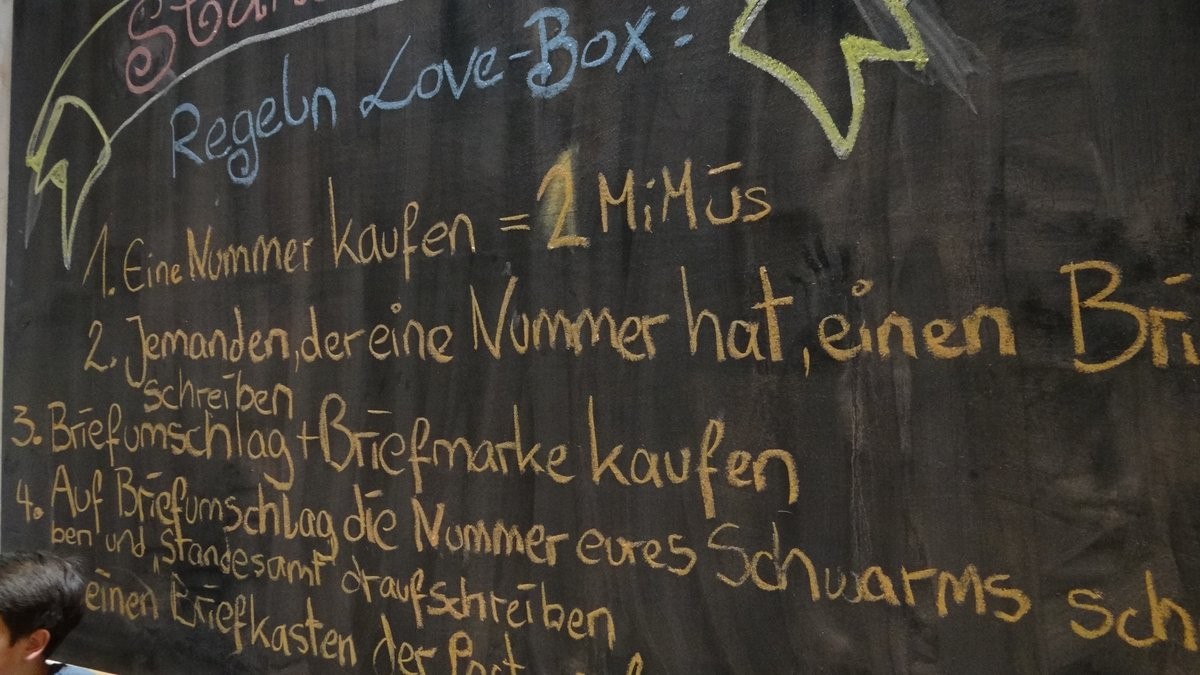 Regeln Love-Box:
1. Eine Nummer kaufen = 2 MiMüs
2. Jemanden, der eine Nummer hat, einen Bri
schreiben
3. Briefumschlag + Briefmarke kaufen
4. Auf Briefumschlag die Nummer eures Schwarms sch
ben und „Standesamt" draufschreiben
einen Briefkasten der Post